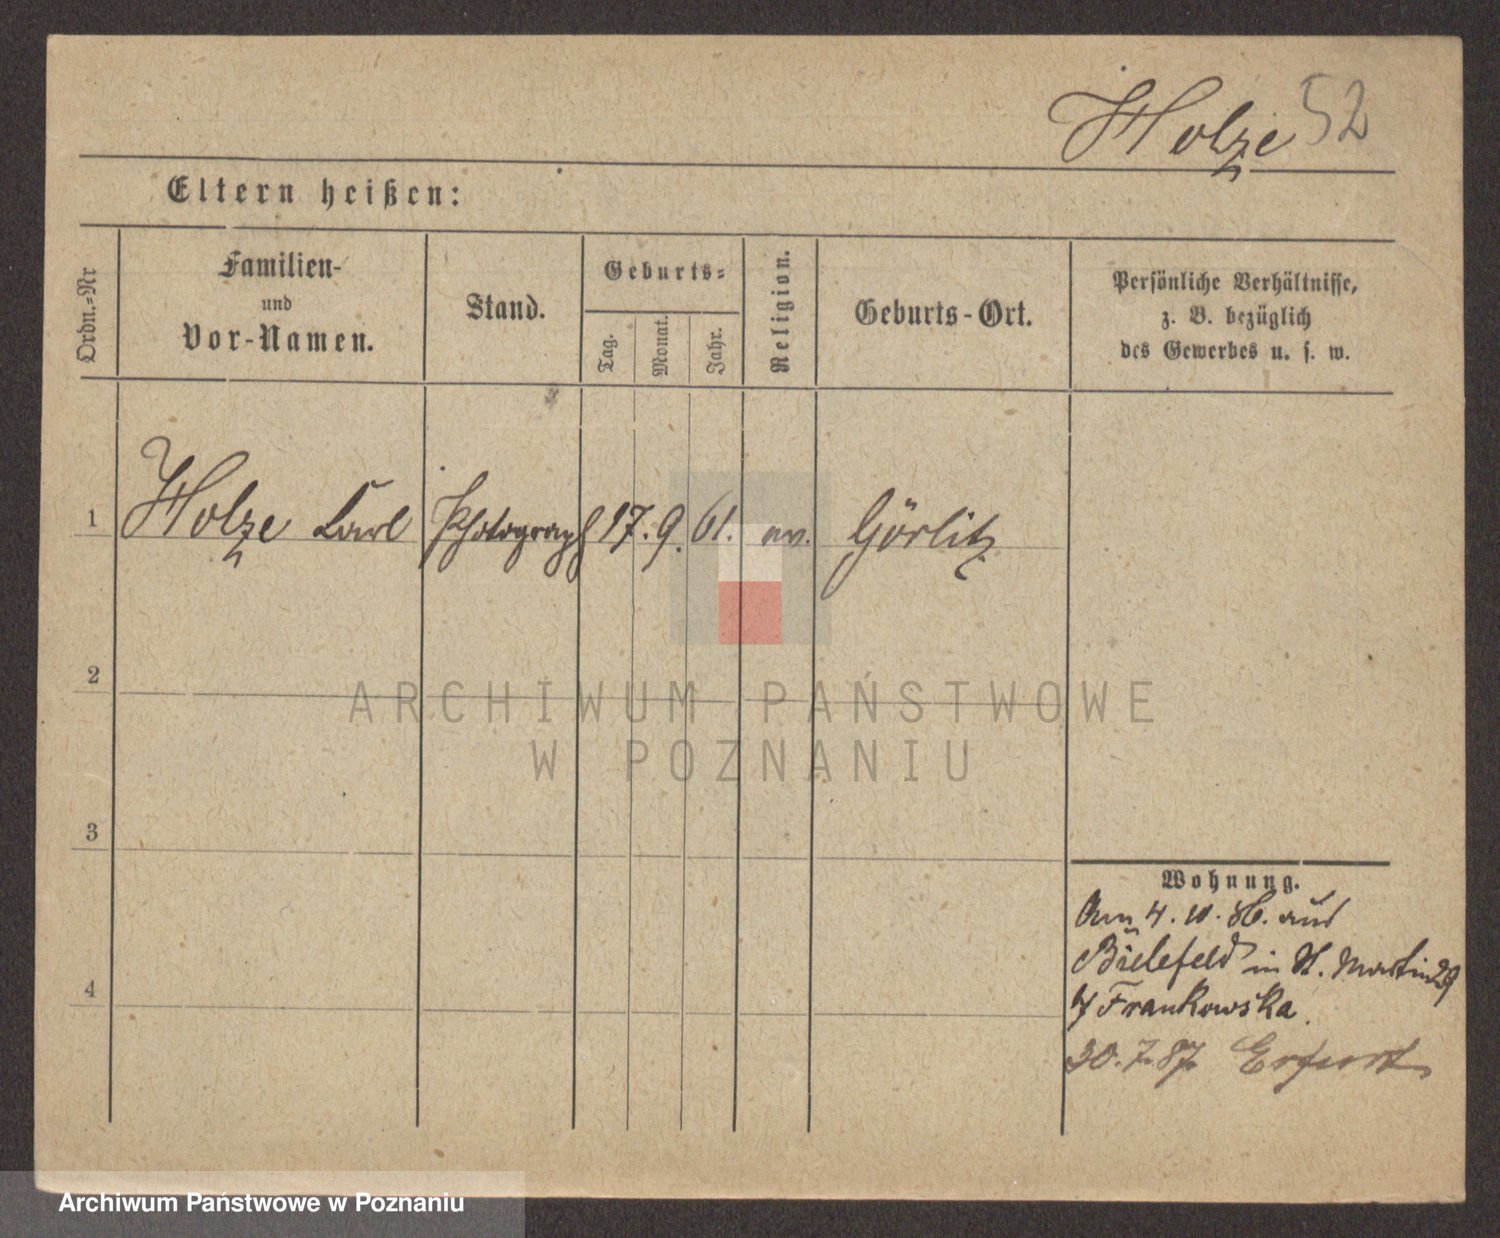 Holze 52
Eltern heißen:
Ordn.=Nr
Familien-
und
Vor-Namen.
Stand.
Geburts=
Tag.
Monat.
Jahr.
Religion.
Geburts-Ort.
Persönliche Verhältnisse,
z. B. bezüglich
des Gewerbes u. s. w.
1 Holze Carl Photograph 17. 9. 61. ev. Görlitz
2
ARCHIWUM PAŃSTWOWE
W POZNANIU
3
Wohnung.
Am 4. 10. 86. aus
Bielefeld in St. Martin 29
4
b/ Frankowska.
30.7.87 Erfurt
Archiwum Państwowe w Poznaniu